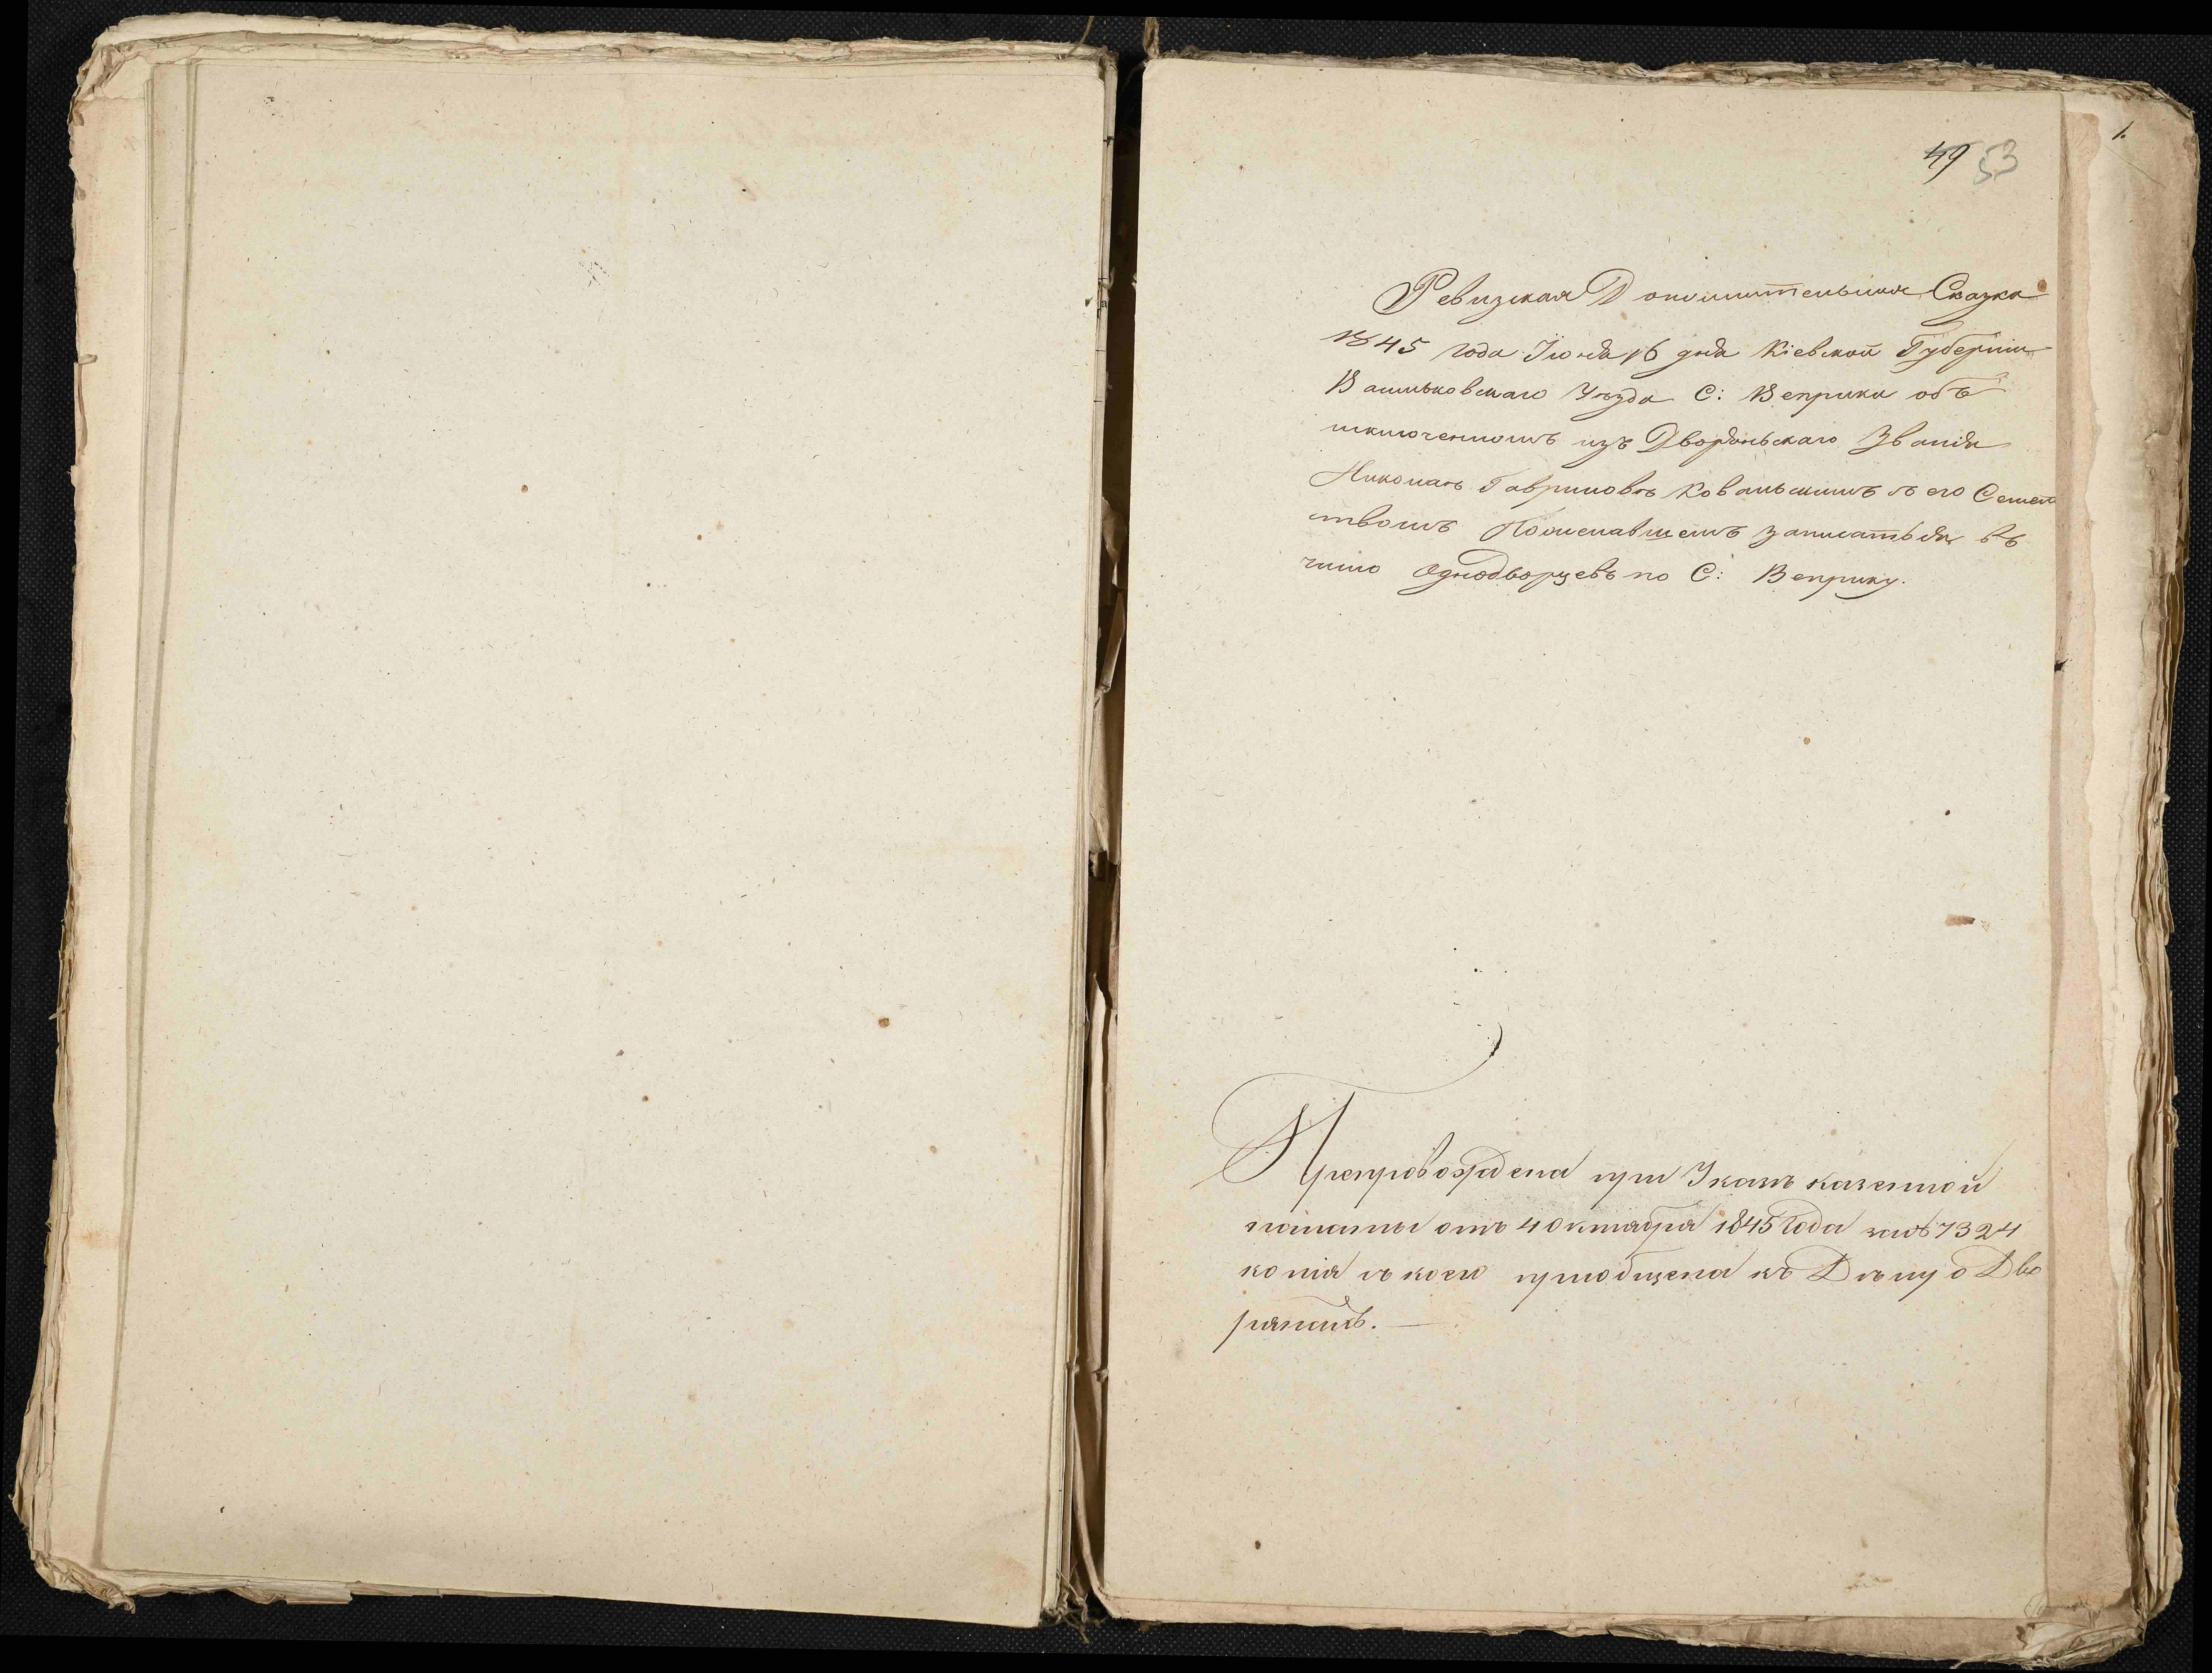 49 53
1.
Ревизкая Дополнительная Сказка
1845 года Іюня 16 дня Кіевской Губерніи
Васильковскаго Уѣзда С: Веприка объ
исключенномъ изъ Дворяньскаго Званія
Николаѣ Гавриловѣ Ковальскимъ съ его Семей
ствомъ Пожелавшемъ записатьця въ
число однодворцевъ по С: Веприку.
Препровождена при Указѣ казенной
палаты отъ 4 Октября 1845 года за № 7324
копія съ коего пріобщена къ Дѣлу о Дво
рянахъ.